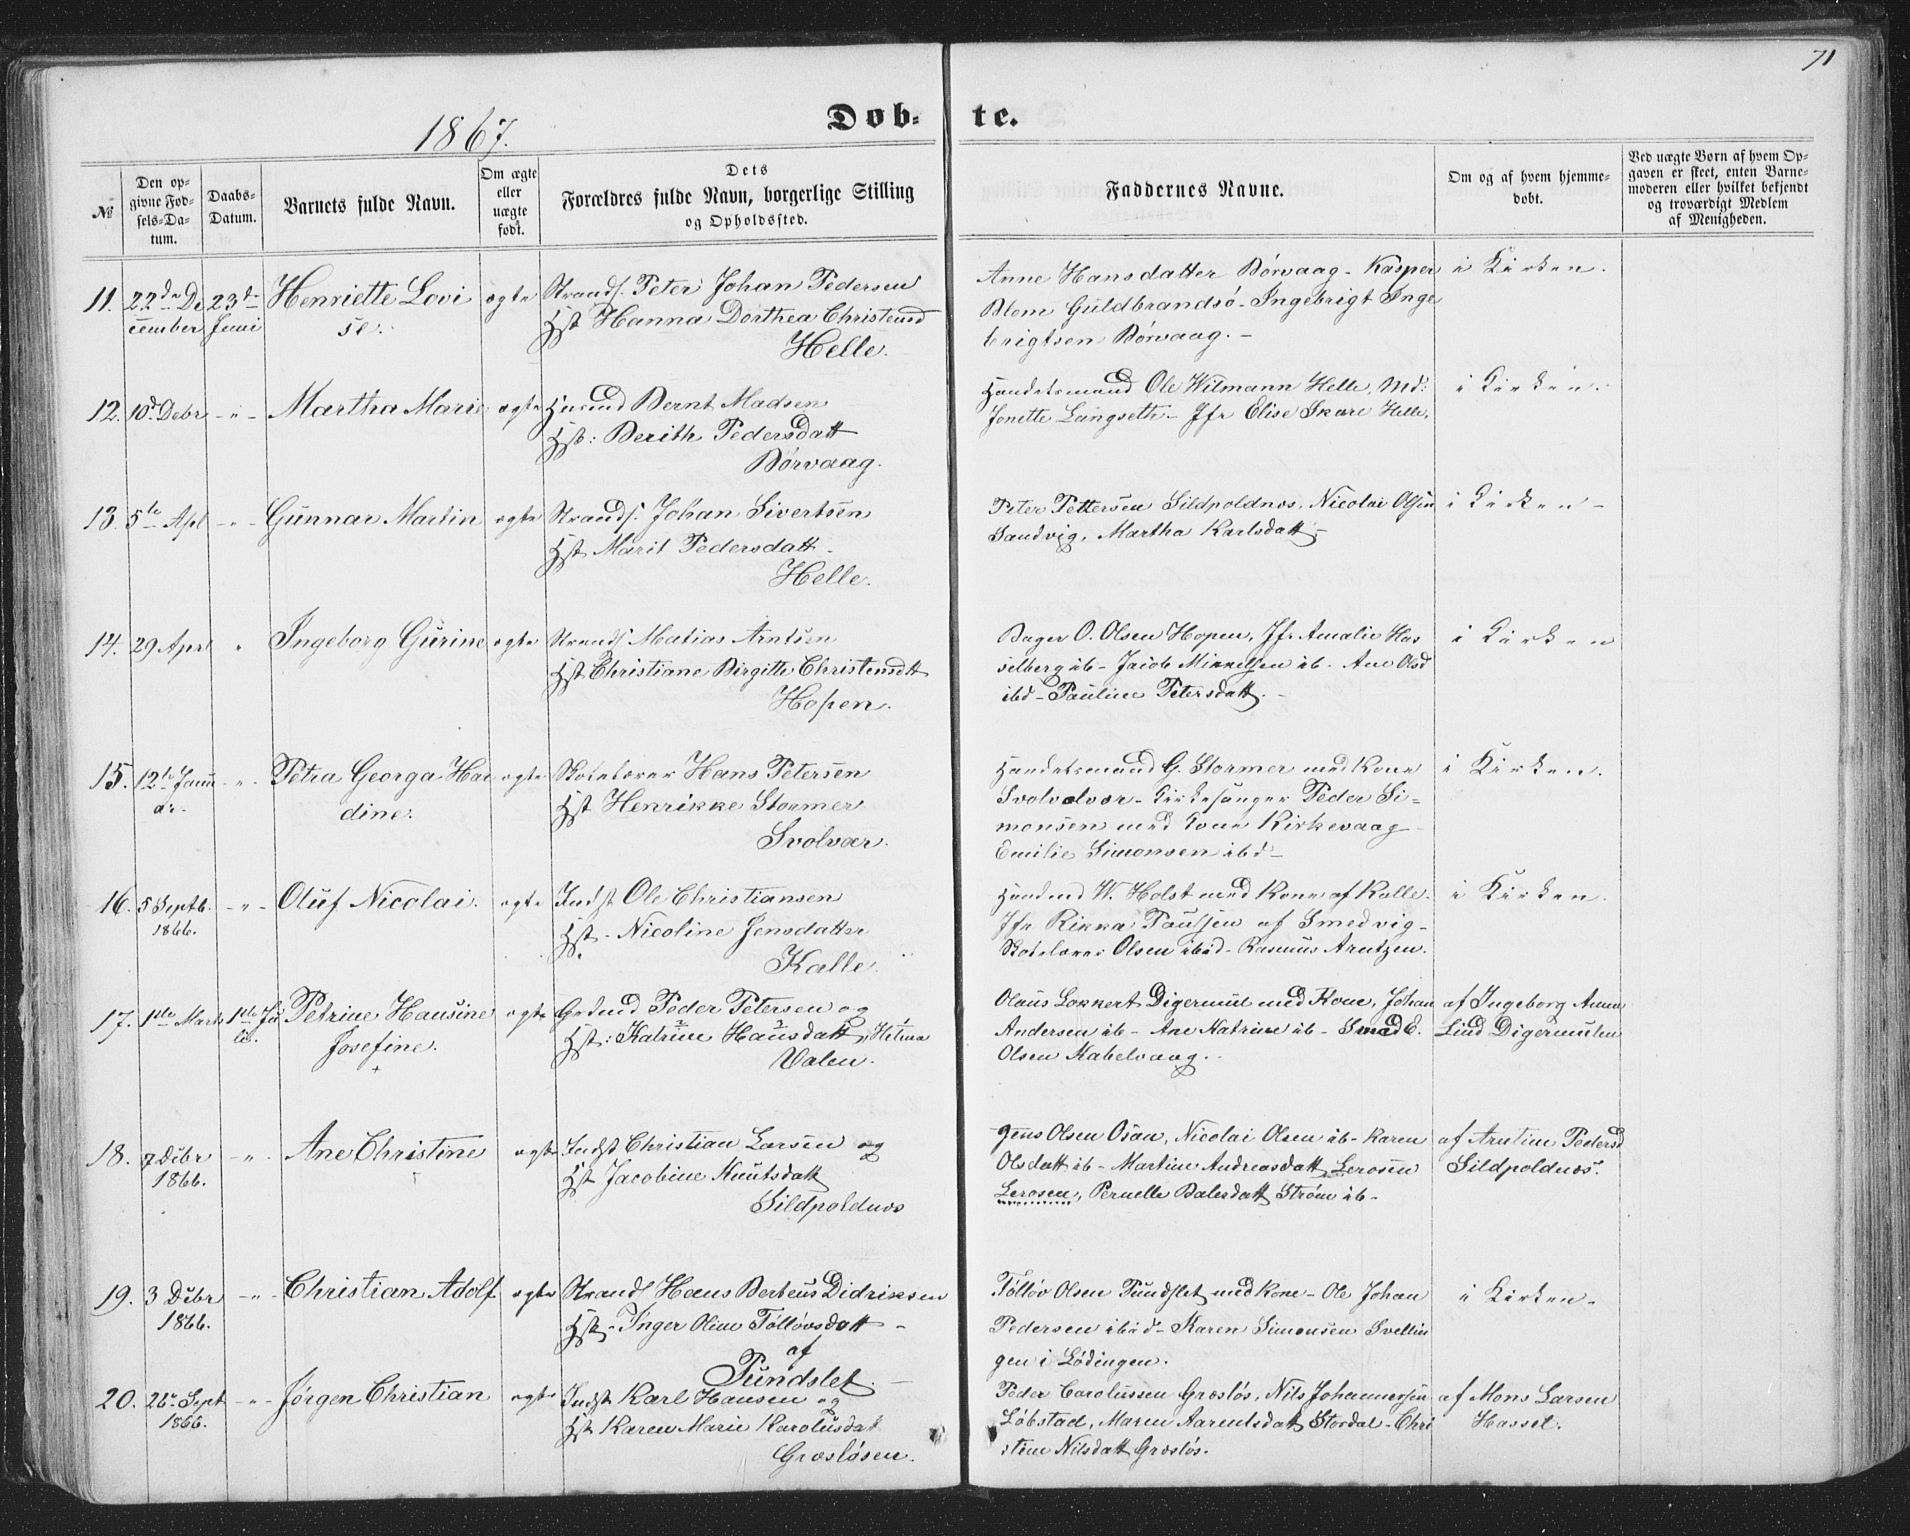 71
1867.
Døb-
te.
№
Den op-
givne Fød-
sels-Da-
tum.
Daabs-
Datum.
Barnets fulde Navn.
Om ægte
eller
uægte
født.
Dets
Forældres fulde Navn, borgerlige Stilling
og Opholdssted.
Faddernes Navne.
Om og af hvem hjemme-
døbt.
Ved uægte Børn af hvem Op-
gaven er skeet, enten Barne-
moderen eller hvilket bekjendt
og troværdigt Medlem
af Menigheden.
11. 22de De
cember
23de
Juni
Henriette Lovi
se.
ægte
Strands. Peter Johan Pedersen
Hst Hanna Dorthea Christensd
Helle.
Anne Hansdatter Børvaag - Kasper
Blom Guldbrandsø - Ingebrigt Inge
brigtsen Børvaag. -
i Kirken.
12. 10d Debr - " - Martha Marie ægte
Husmd Bernt Madsen
Hst: Berith Pedersdatt
Børvaag.
Handelsmand Ole Wilmann Helle, Md:
Jonette Langseth - Jfr Elise Skare Helle,
i Kirken.
13. 5te Apl - " - Gunnar Martin ægte
Strands. Johan Sivertsen
Hst Marit Pedersdatt -
Helle.
Peter Pettersen Sildpoldnes, Nicolai Olsen
Sandvig, Martha Karlsdatt -
i Kirken -
14. 29 Aprl " Ingeborg Gurine ægte
Strands Matias Arntsen
Hst Christiane Birgitte Christensdtt
Hopen.
Bager O. Olsen Hopen, Jfr Amalie Has
selberg ib - Jacob Mikkelsen ib - Ane Olsd
ibd - Pauline Petersdatt. -
i Kirken
15. 12te Janu
ar.
- " - Petra Georga Har
dine.
ægte
Skolelærer Hans Petersen
Hst Henrikke Stormer
Svolvær.
Handelsmand G. Stormer med Kone
Svolvolvær - Kirkesanger Peder Si-
monsen med Kone Kirkevaag -
Emilie Simonsen ibd -
i Kirken.
16. 5 Septb.
1866.
- " - Oluf Nicolai. ægte
Indst Ole Christiansen
Hst - Nicoline Jensdatter
Kalle.
Handmd W. Holst med Kone af Kalle.
Jfr Rikka Paulsen af Smedvig -
Skolelærer Olsen ibid - Rasmus Arntzen.
i Kirken.
17. 1ste Marts 1ste Ju
li.
Petrine Hansine
Josefine.
+
ægte
Grdmd Peder Petersen og
Hst: Katrine Hansdatt, Helena
Valen.
Olaus Lokkert Digermul med Kone, Johan
Andersen ib - Ane Katrine ib - Smed E.
Olsen Kabelvaag.
af Ingeborg Anna
Lind Digermulen
18. 7 Debr
1866.
- " - Ane Christine ægte
Indst Christian Larsen og
Hst Jacobine Knutsdatt
Sildpoldnes
Jens Olsen Osan, Nicolai Olsen ib - Karen
Olsdatt ib - Martine Andreasdatt Lerosen
Lerosen, Pernelle Dalersdatt Strøm ib -
af Arntine Pedersd
Sildpoldnes.
19. 3 Debr
1866.
- " - Christian Adolf ægte
Strands Hans Berteus Didriksen
Hst - Inger Oline Tølløvsdatt -
af
Pundslet. -
Tølløv Olsen Pundslet med Kone - Ole Johan
Pedersen ibid - Karen Simonsen Svellin
gen i Lødingen.
i Kirken.
20. 26 Sept
1866.
- " - Jørgen Christian ægte
Indst Karl Hansen og
Hst Karen Marie Karolusdat
Græsløsen.
Peder Carolussen Græsløs, Nils Johannessen
Løbstad, Maren Aarentsdatt Stordal - Chri
stine Nilsdatt Græsløs.
af Mons Larsen
Hassel.